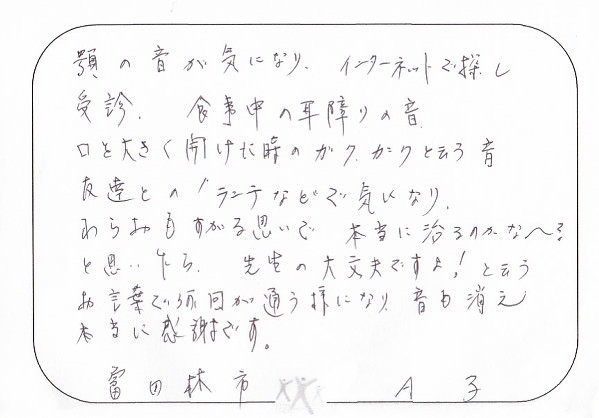 顎の音が気になり、インターネットで探し
受診、食事中の耳障りの音、
口を大きく開けた時のガク、カクと云う音
友達とのランチなどで気になり、
わらおもすがる思いで 本当に治るのかな〜?
と思いたら、先生の大丈夫ですよ!と云う
お言葉で 回が通う様になり 音も消え
本当に感謝です。
富田林市 A子